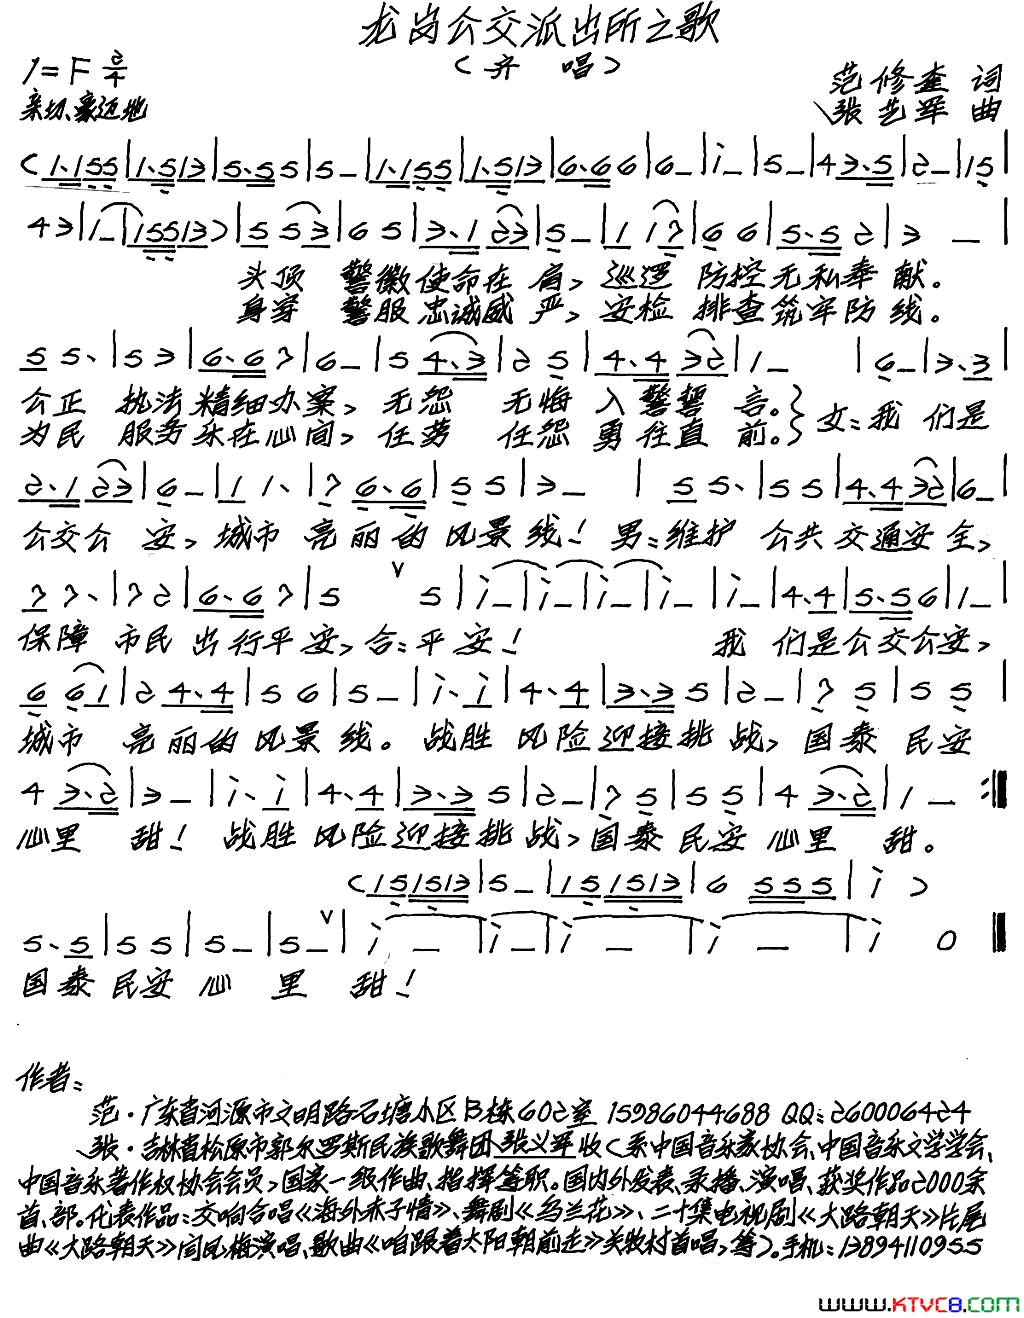 龙岗公交派出所之歌
(齐 唱)
1=F 2/4
亲切、豪迈地
范修奎 词
张艺军 曲
(1·155|1·513|5·55|5–|1·155|1·513|6·66|6–|i–|5–|43·5|2–|15|
43|1–|155513>|553|65|3·123|5–|1i7|66|5·52|3 –|
头顶 警徽使命在 肩,巡逻 防控无私奉 献。
身穿 警服忠诚威 严,安检 排查筑牢防 线。
55·|53|6·67|6–|54·3|25|4·432|1– |6–|3·3|
公正 执法精细办案,无怨 无悔 入警誓 言。}女:我 们是
为民 服务乐在心间,任劳 任怨 勇往直 前。
2·123|6–|11·|76·6|55|3– |55·|55|4·432|6–|
公交公 安,城市 亮丽的 风景线!男:维护 公共交通安全,
77·|72|6·67|5 ∨ 5|i–|i–|i–|i–|i–|4·4|5·56|1–|
保障 市民 出行平安,合:平安! 我 们是公交公安,
661|24·4|56|5–|i·i|4·4|3·35|2–|75|55|
城市 亮丽的风景 线。战胜 风险迎接挑 战,国泰 民安
43·2|3–|i·i|4·4|3·35|2–|75|55|43·2|1–:‖
心里 甜!战胜 风险迎接挑 战,国泰 民安 心里 甜。
(151513|5–|151513|6555|i)
5·5|55|5–|5–∨|i –|i–|i –|i –|i 0‖
国泰 民安 心 里 甜!
作者:
范·广东省河源市文明路石塘小区B栋602室 15986044688 QQ:260006424
张·吉林省松原市郭尔罗斯民族歌舞团张义军收(系中国音乐家协会、中国音乐文学学会、
中国音乐著作权协会会员,国家一级作曲、指挥等职。国内外发表、录播、演唱、获奖作品2000余
首、部。代表作品:交响合唱《海外赤子情》、舞剧《乌兰花》、二十集电视剧《大路朝天》片尾
曲《大路朝天》闫凤梅演唱、歌曲《咱跟着太阳朝前走》关牧村首唱,等)。手机:13894110955
www.KTVC8.com